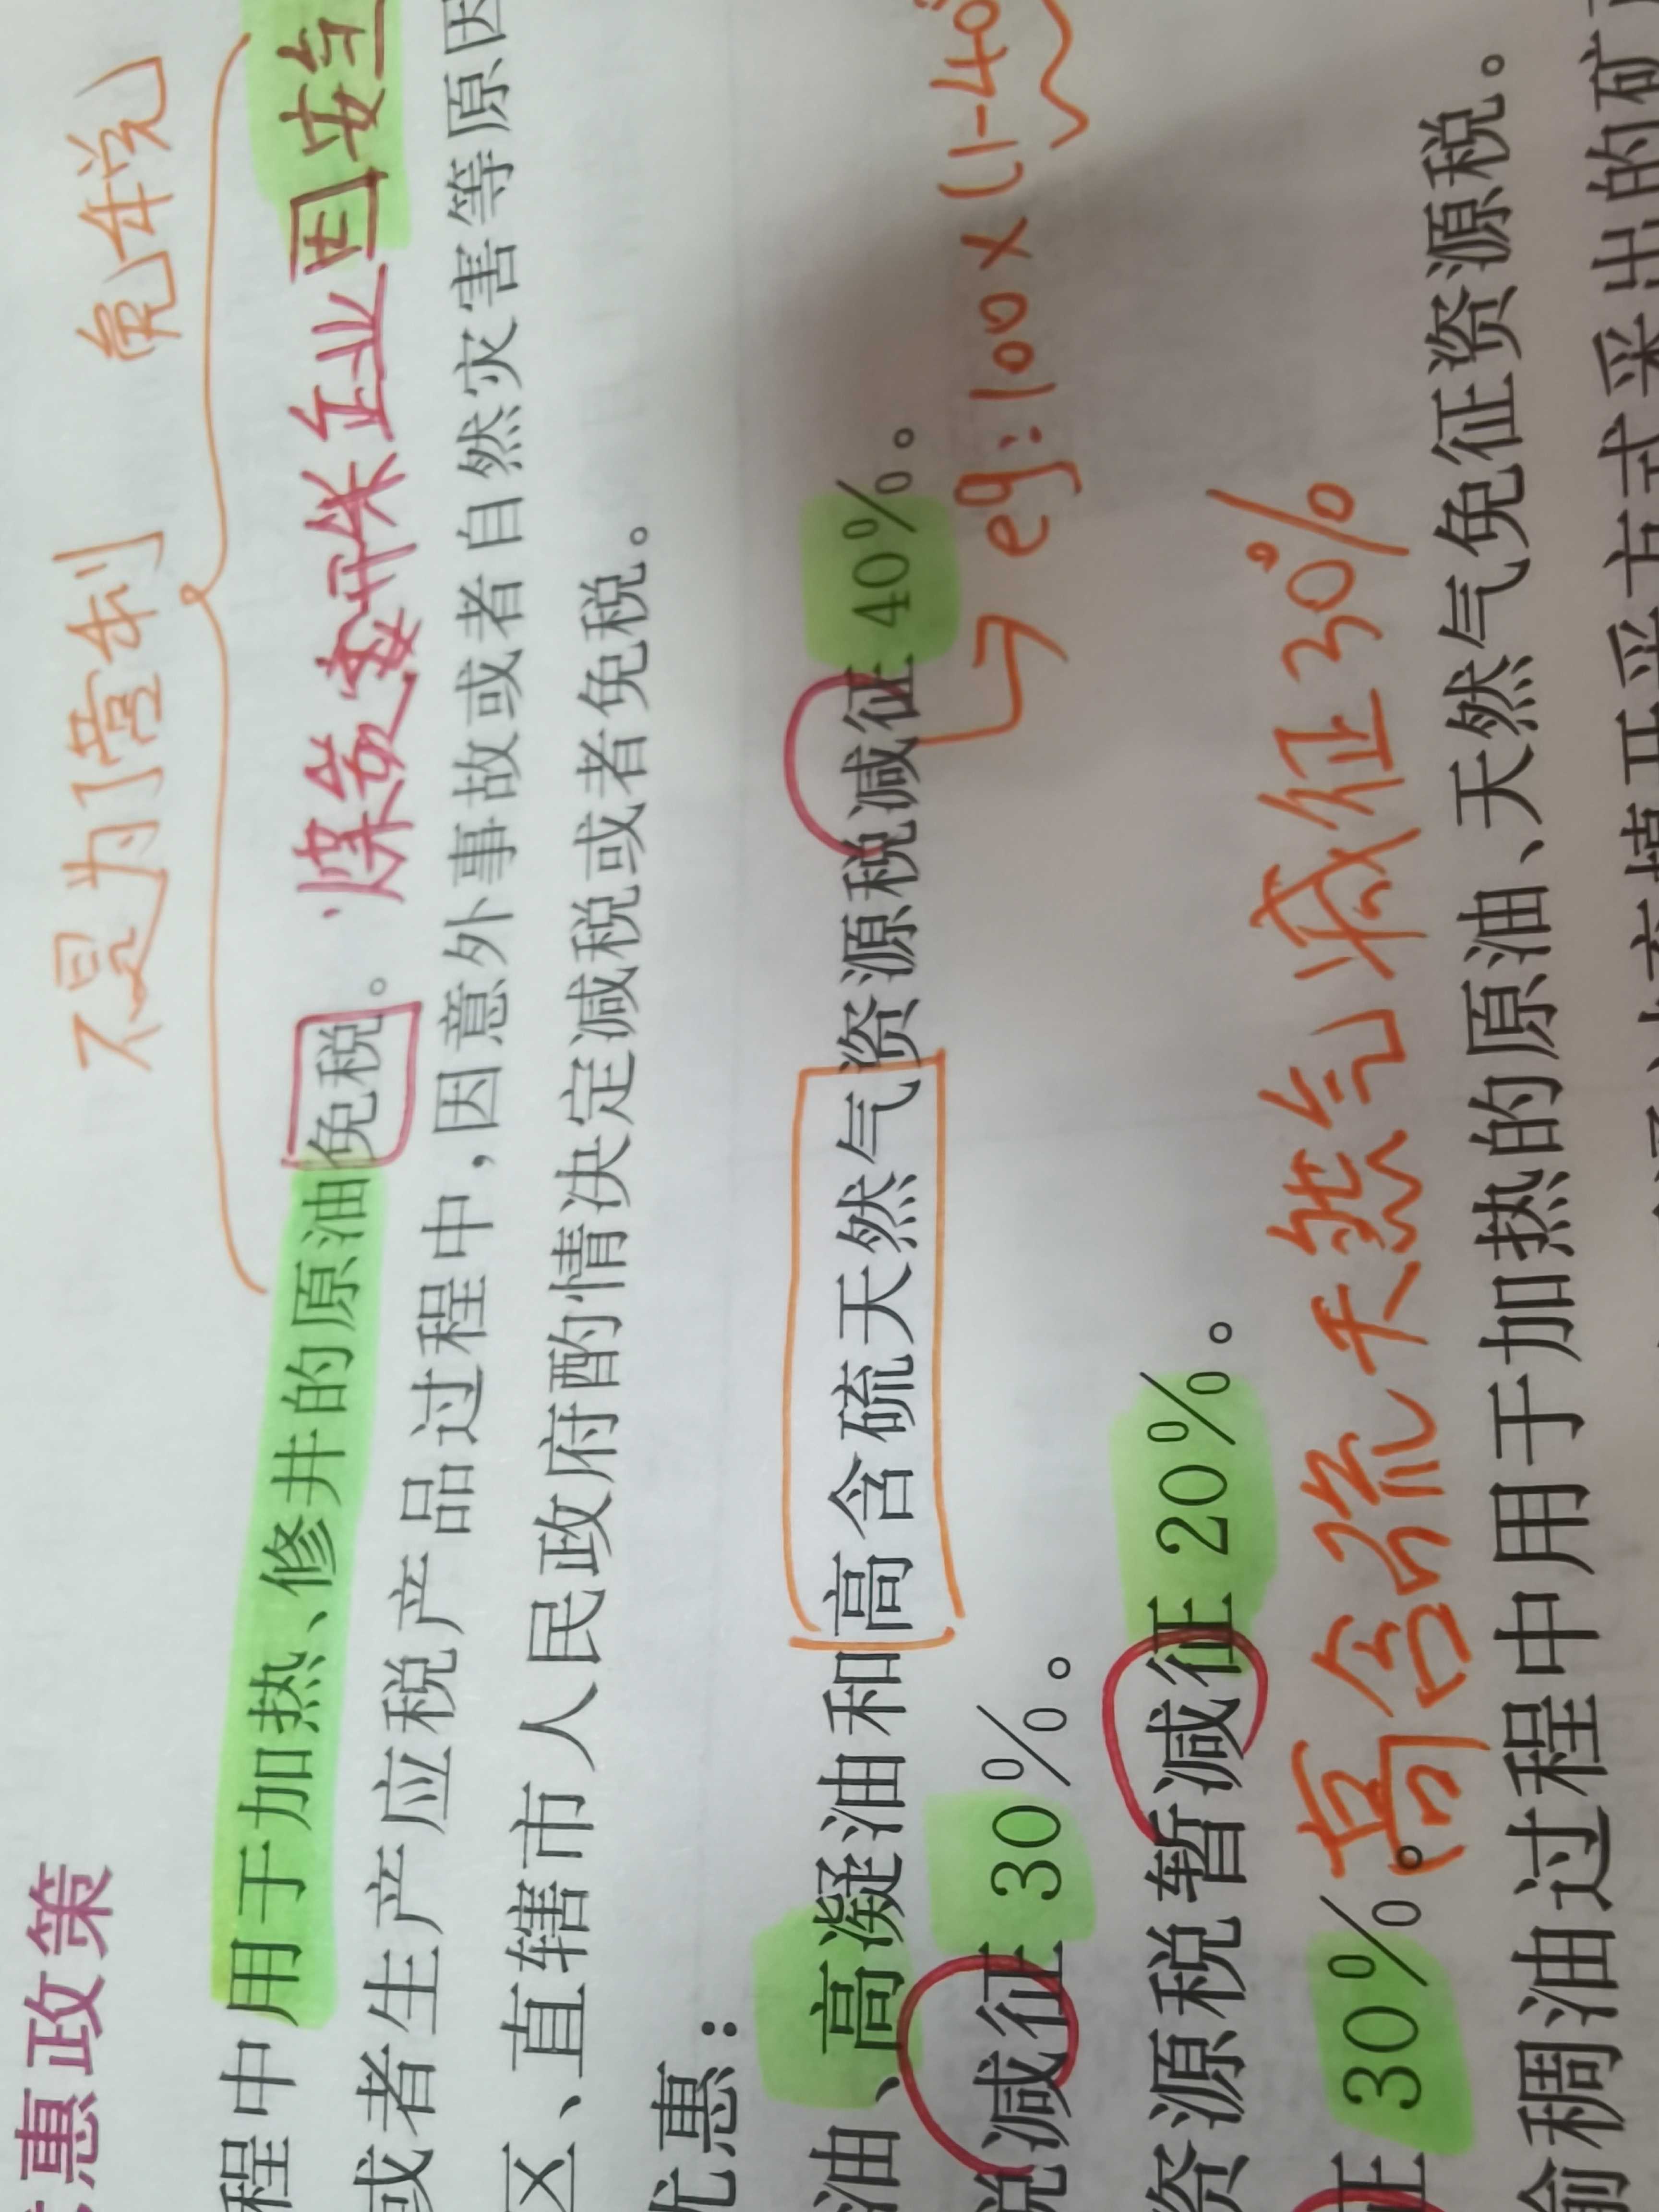 惠政策
不是为了营利 免年税
程中用于加热、修井的原油免税。煤炭开采企业因安全
或者生产应税产品过程中,因意外事故或者自然灾害等原因
区、直辖市人民政府酌情决定减税或者免税。
优惠:
油、高凝油和高含硫天然气资源税减征 40%。
eg:100×(1-40
税减征 30%。
资源税暂减征 20%。
高含硫天然气减征30%
征 30%。
油过程中用于加热的原油、天然气免征资源税。
稠油
开采方式采出的矿